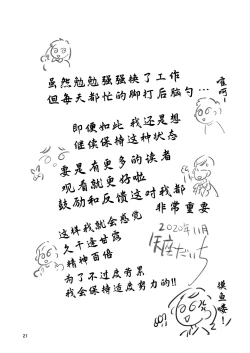 虽然勉勉强强换了工作
但每天都忙的脚打后脑勺…
即便如此 我还是想
继续保持这种状态
要是有更多的读者
观看就更好啦
鼓励和反馈这对我都
非常重要
这样我就会感觉
久干逢甘露
精神百倍
为了不过度劳累
我会保持适度努力的!!
2020年11月
摸鱼喽!
21